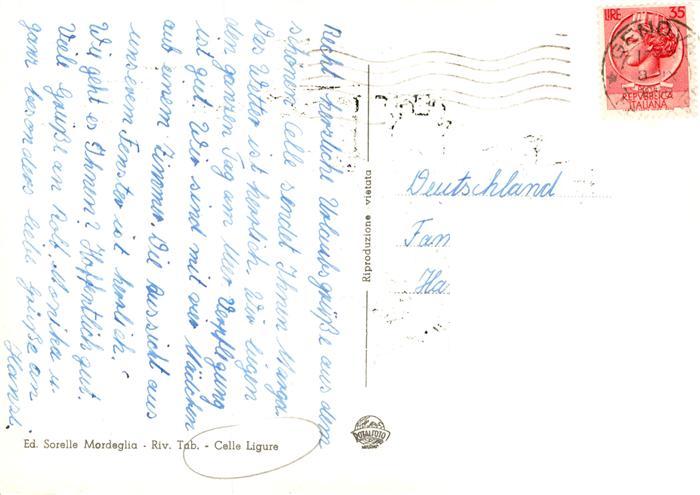 Recht herrliche Urlaubsgrüße aus dem
schönen Celle sendet Ihnen Marga.
Das Wetter ist herrlich. Wir liegen
den ganzen Tag am Meer. Verpflegung
ist gut. Wir sind mit vier Mädchen
auf einem Zimmer. Die Aussicht aus
unserem Fenster ist herrlich.
Wie geht es Ihnen? Hoffentlich gut.
Viele Grüße an Rolf, Monika u.
ganz besonders liebe Grüße an
Hansi.
Ed. Sorelle Mordeglia - Riv. Tab. - Celle Ligure
Riproduzione vietata
LIRE 35
POSTE
REPVBBLICA
ITALIANA
Deutschland
Fam
Ha